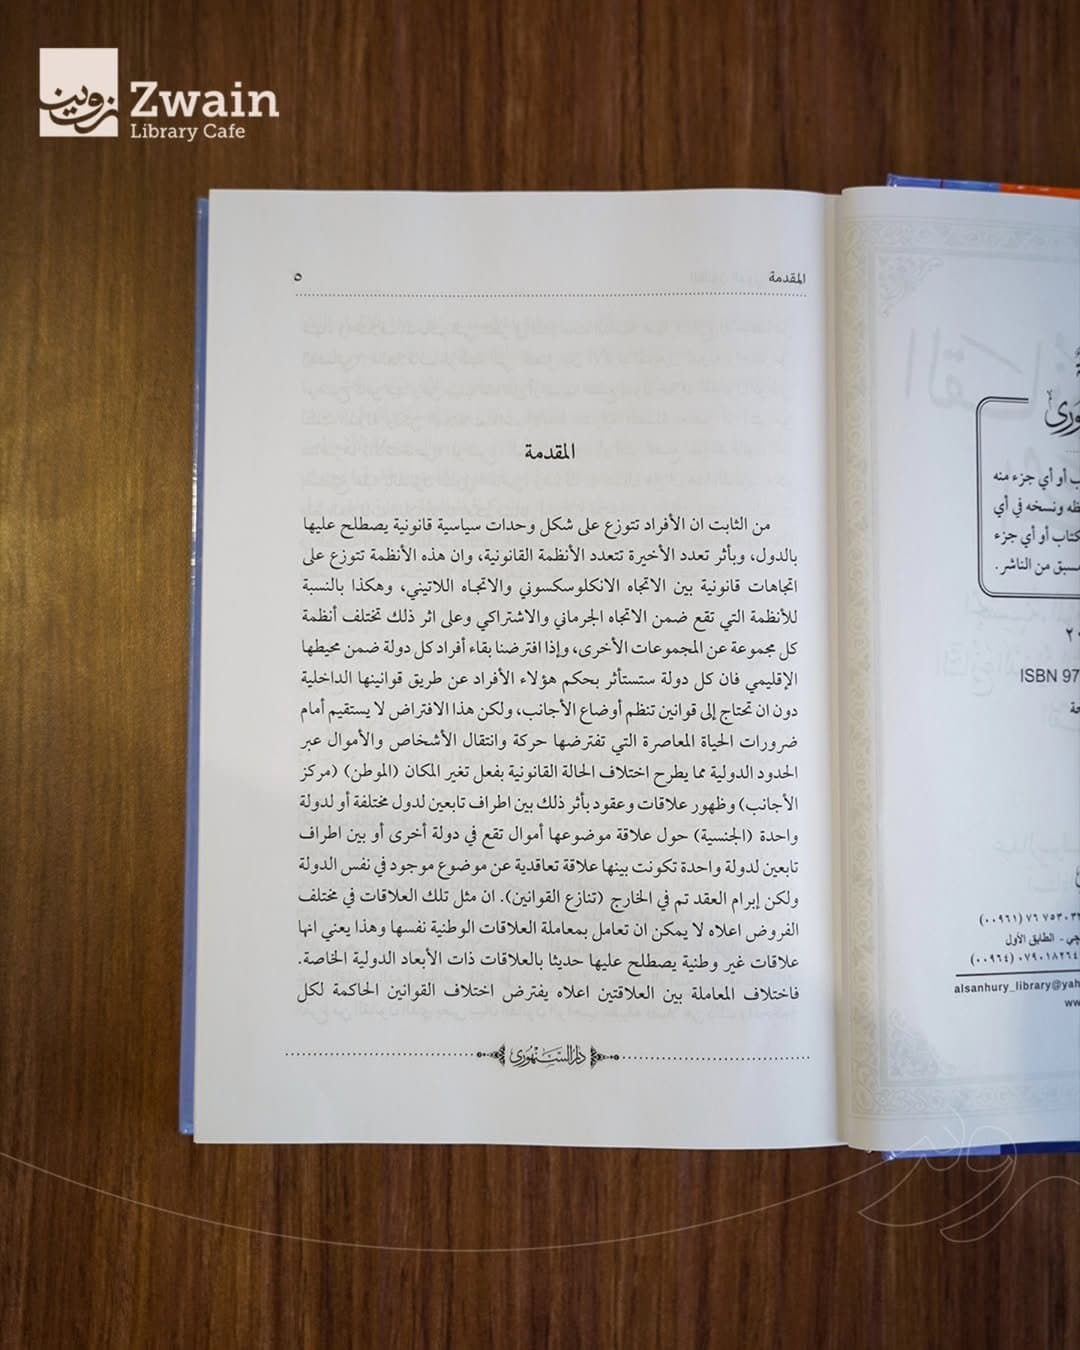 زوين
Zwain
Library Cafe
المقدمة
٥
المقدمة
من الثابت ان الأفراد تتوزع على شكل وحدات سياسية قانونية يصطلح عليها
بالدول، وبأثر تعدد الأخيرة تتعدد الأنظمة القانونية، وان هذه الأنظمة تتوزع على
اتجاهات قانونية بين الاتجاه الانكلوسكسوني والاتجاه اللاتيني، وهكذا بالنسبة
للأنظمة التي تقع ضمن الاتجاه الجرماني والاشتراكي وعلى اثر ذلك تختلف أنظمة
كل مجموعة عن المجموعات الأخرى، وإذا افترضنا بقاء أفراد كل دولة ضمن محيطها
الإقليمي فان كل دولة ستستأثر بحكم هؤلاء الأفراد عن طريق قوانينها الداخلية
دون ان تحتاج إلى قوانين تنظم أوضاع الأجانب، ولكن هذا الافتراض لا يستقيم أمام
ضرورات الحياة المعاصرة التي تفترضها حركة وانتقال الأشخاص والأموال عبر
الحدود الدولية مما يطرح اختلاف الحالة القانونية بفعل تغير المكان (الموطن) (مركز
الأجانب) وظهور علاقات وعقود بأثر ذلك بين اطراف تابعين لدول مختلفة أو لدولة
واحدة (الجنسية) حول علاقة موضوعها أموال تقع في دولة أخرى أو بين اطراف
تابعين لدولة واحدة تكونت بينها علاقة تعاقدية عن موضوع موجود في نفس الدولة
ولكن إبرام العقد تم في الخارج (تنازع القوانين). ان مثل تلك العلاقات في مختلف
الفروض اعلاه لا يمكن ان تعامل بمعاملة العلاقات الوطنية نفسها وهذا يعني انها
علاقات غير وطنية يصطلح عليها حديثا بالعلاقات ذات الأبعاد الدولية الخاصة.
فاختلاف المعاملة بين العلاقتين اعلاه يفترض اختلاف القوانين الحاكمة لكل
دار السنهوري
أو أي جزء منه
ونسخه في أي
أو أي جزء
مسبق من الناشر.
ISBN 97
(٠٠٩٦١) ٧٦ ٧٥٣٠٣
- الطابق الأول
(٠٠٩٦٤) ٠٧٩٠١٨٢٦٤
alsanhury_library@yah
ww